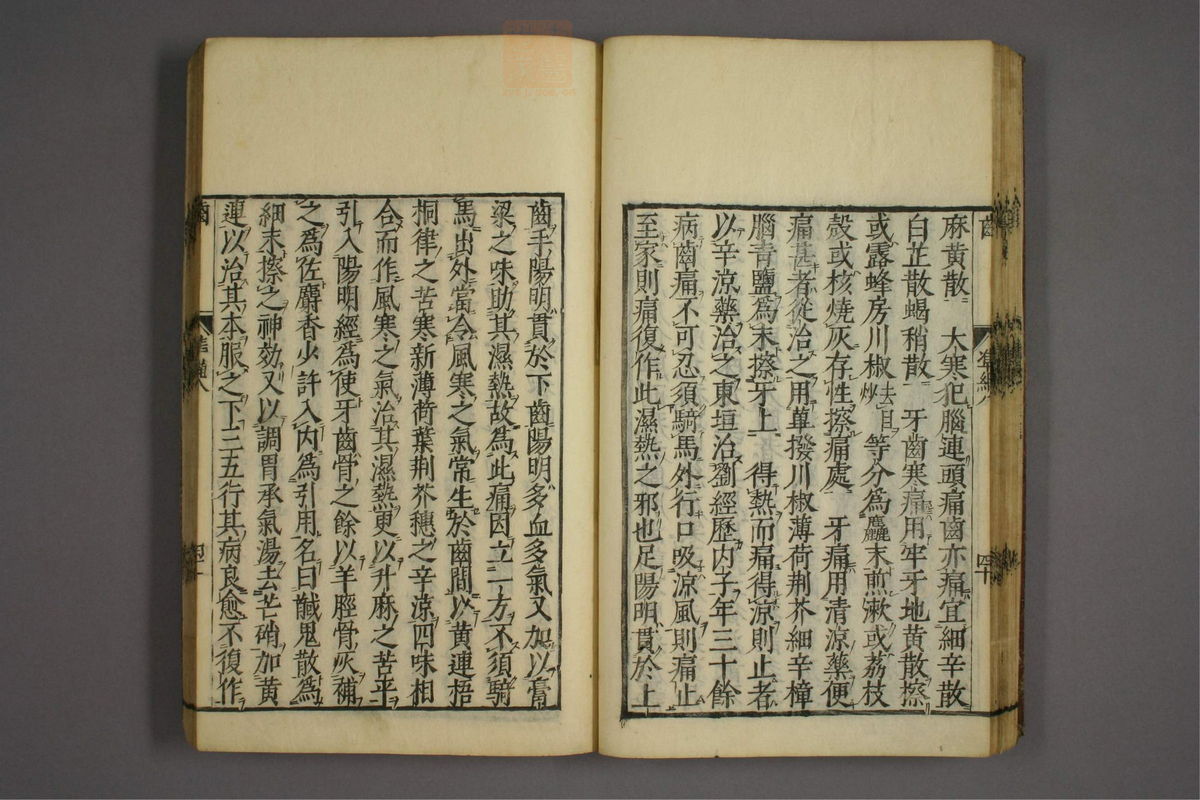 麻黄散　大寒犯腦連頭痛齒亦痛宜細辛散
白芷散蝎稍散　牙齒寒痛用牢牙地黄散擦
或露蜂房川椒去目炒等分為麤末煎漱或荔枝
殼或核燒灰存性擦痛處　牙痛用清凉藥便
痛甚者從治之用蓽撥川椒薄荷荆芥細辛樟
腦青鹽為末擦牙上　得熱而痛得凉則止者
以辛凉藥治之東垣治劉經歷内子年三十餘
病齒痛不可忍須騎馬外行口吸凉風則痛止
至家則痛復作此濕熱之邪也足陽明貫於上
齒手陽明貫於下齒陽明多血多氣又加以膏
梁之味助其濕熱故為此痛因立一方不須騎
馬出外當令風寒之氣常生於齒間以黄連梧
桐律之苦寒新薄荷葉荆芥穗之辛凉四味相
合而作風寒之氣治其濕熱更以升麻之苦平
引入陽明經為使牙齒骨之餘以羊脛骨灰補
之為佐麝香少許入内為引用名曰醎鬼散為
細末擦之神効又以調胃承氣湯去芒硝加黄
連以治其本服之下三五行其病良愈不復作
齒
四十
齒